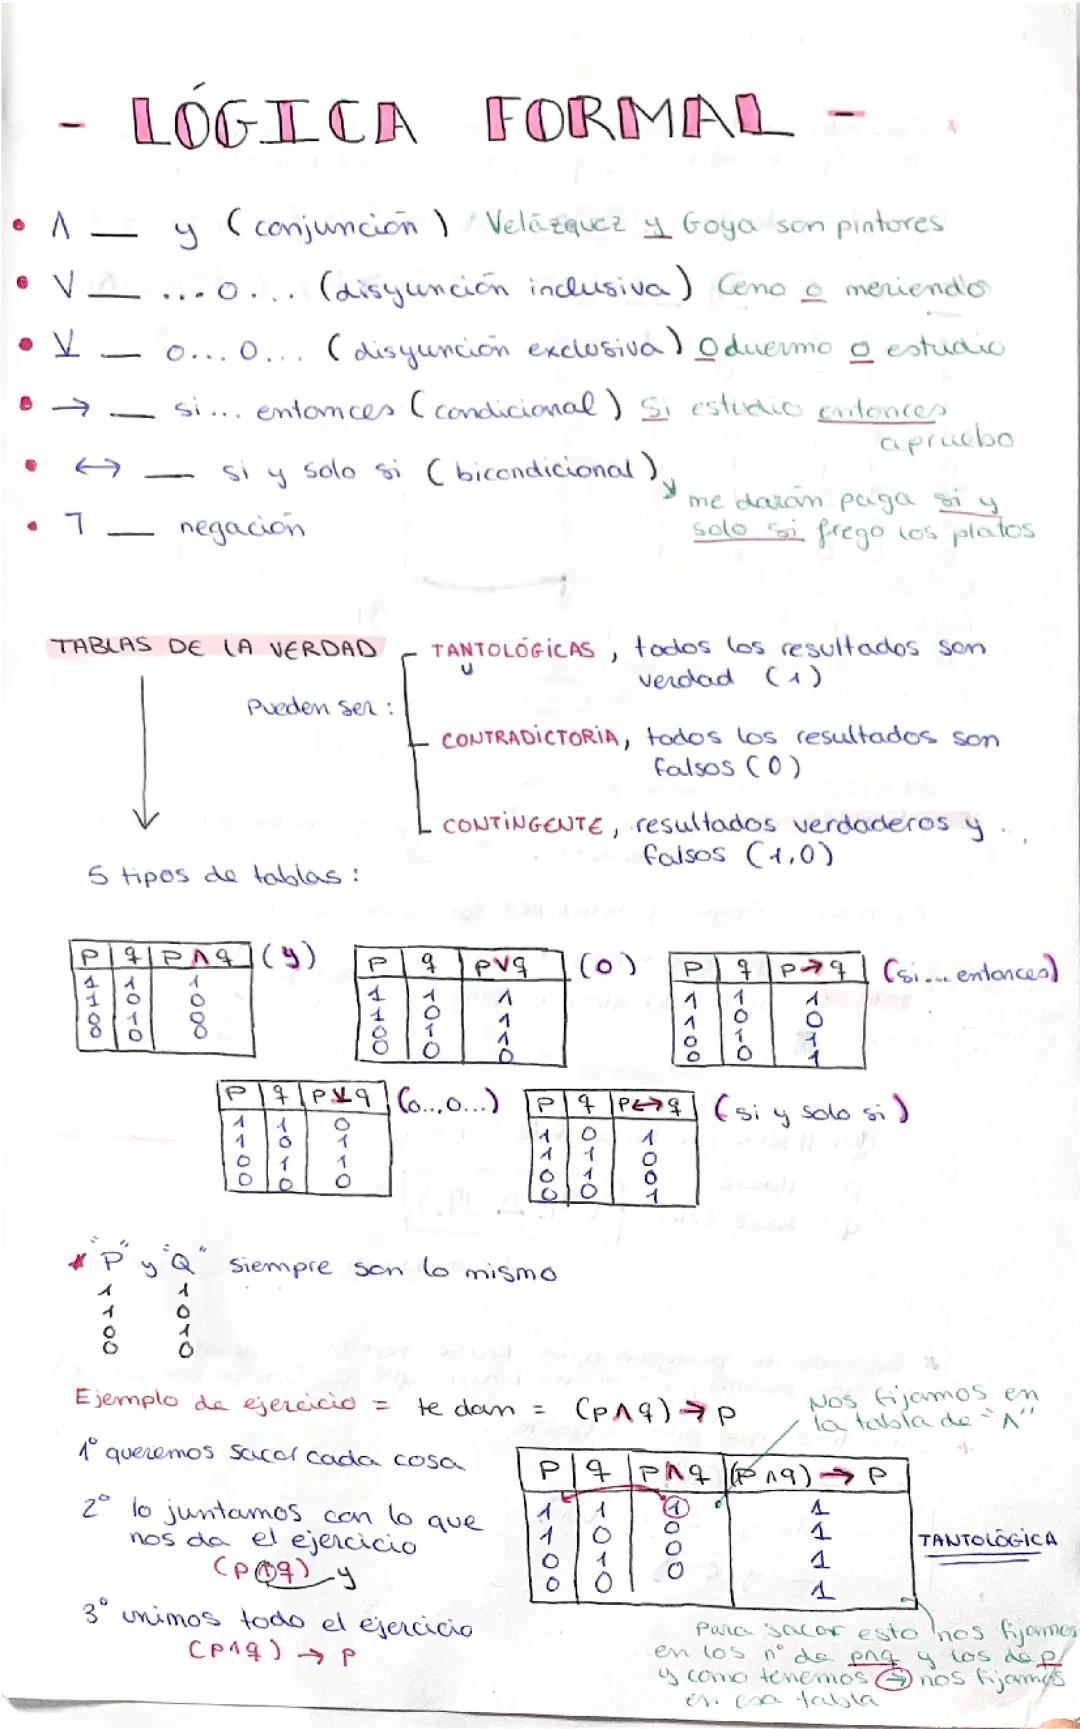 - LÓGICA FORMAL -
• Λ __ y (conjunción) Velázquez y Goya son pintores
• V __ ...o... (disyunción inclusiva) Ceno o meriendo
• V̲ __ o...o... (disyunción exclusiva) O duermo o estudio
• → __ si... entonces (condicional) Si estudio entonces
apruebo
• ↔ __ si y solo si (bicondicional)
me darán paga si y
solo si frego los platos
• ⌐ __ negación
TABLAS DE LA VERDAD
Pueden ser:
TANTOLÓGICAS, todos los resultados son
U
verdad (1)
CONTRADICTORIA, todos los resultados son
falsos (0)
CONTINGENTE, resultados verdaderos y
falsos (1,0)
5 tipos de tablas:
P q P Λ q (y)
1 1 1
1 0 0
0 1 0
0 0 0
P q p V q (o)
1 1 1
1 0 1
0 1 1
0 0 0
P q P → q (si... entonces)
1 1 1
1 0 0
0 1 1
0 0 1
P q P V̲ q (o...o...)
1 1 0
1 0 1
0 1 1
0 0 0
P q P ↔ q (si y solo si)
1 0 1
1 1 0
0 1 0
0 0 1
* "P" y "Q" siempre son lo mismo
1 1
1 0
0 1
0 0
Ejemplo de ejercicio = te dan = (p Λ q) → p
Nos fijamos en
la tabla de "Λ"
1º queremos sacar cada cosa
2º lo juntamos con lo que
nos da el ejercicio
(p Λ q) y
3º unimos todo el ejercicio
(p Λ q) → p
P q P Λ q (P Λ q) → P
1 1 1 1
1 0 0 1
0 1 0 1
0 0 0 1
TANTOLÓGICA
Para sacar esto nos fijamos
en los nº de p Λ q y los de p
y como tenemos → nos fijamos
en esa tabla